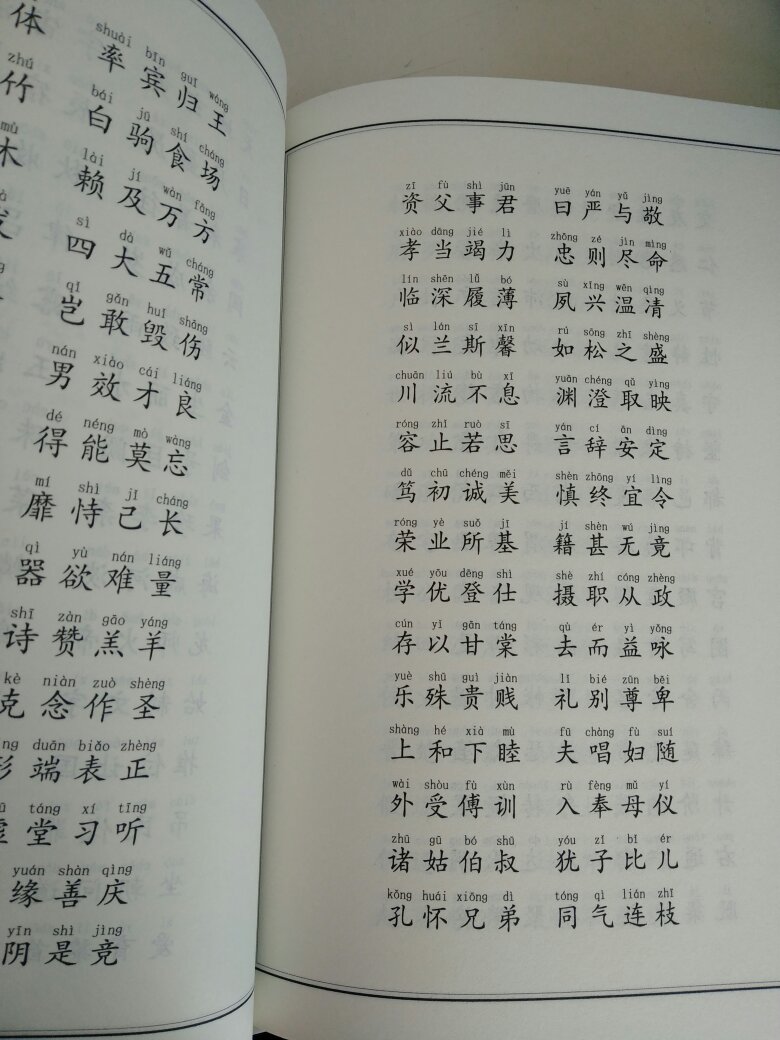 shuài bīn guī wáng
体 率宾归王
zhú bái jū shí cháng
竹 白驹食场
mù lài jí wàn fāng
木 赖及万方
sì dà wǔ cháng
四大五常
qǐ gǎn huǐ shāng
岂敢毁伤
nán xiào cái liáng
男效才良
dé néng mò wàng
得能莫忘
mí shì jǐ cháng
靡恃己长
qì yù nán liáng
器欲难量
shī zàn gāo yáng
诗赞羔羊
kè niàn zuò shèng
克念作圣
duān biǎo zhèng
形端表正
táng xí tīng
堂习听
yuán shàn qìng
缘善庆
yīn shì jìng
阴是竞
zī fù shì jūn yuē yán yǔ jìng
资父事君 曰严与敬
xiào dāng jié lì zhōng zé jìn mìng
孝当竭力 忠则尽命
lín shēn lǚ bó sù xīng wēn qìng
临深履薄 夙兴温清
sì lán sī xīn rú sōng zhī shèng
似兰斯馨 如松之盛
chuān liú bù xī yuān chéng qǔ yìng
川流不息 渊澄取映
róng zhǐ ruò sī yán cí ān dìng
容止若思 言辞安定
dǔ chū chéng měi shèn zhōng yí lìng
笃初诚美 慎终宜令
róng yè suǒ jī jí shèn wú jìng
荣业所基 籍甚无竟
xué yōu dēng shì shè zhí cóng zhèng
学优登仕 摄职从政
cún yǐ gān táng qù ér yì yǒng
存以甘棠 去而益咏
yuè shū guì jiàn lǐ bié zūn bēi
乐殊贵贱 礼别尊卑
shàng hé xià mù fū chàng fù suí
上和下睦 夫唱妇随
wài shòu fù xùn rù fèng mǔ yí
外受傅训 入奉母仪
zhū gū bó shū yóu zǐ bǐ ér
诸姑伯叔 犹子比儿
kǒng huái xiōng dì tóng qì lián zhī
孔怀兄弟 同气连枝